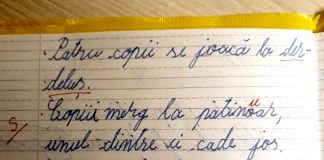 Patru copii se joacă la der-
deluș.
Copiii merg la patinouar,
unul dintre ii cade jos.